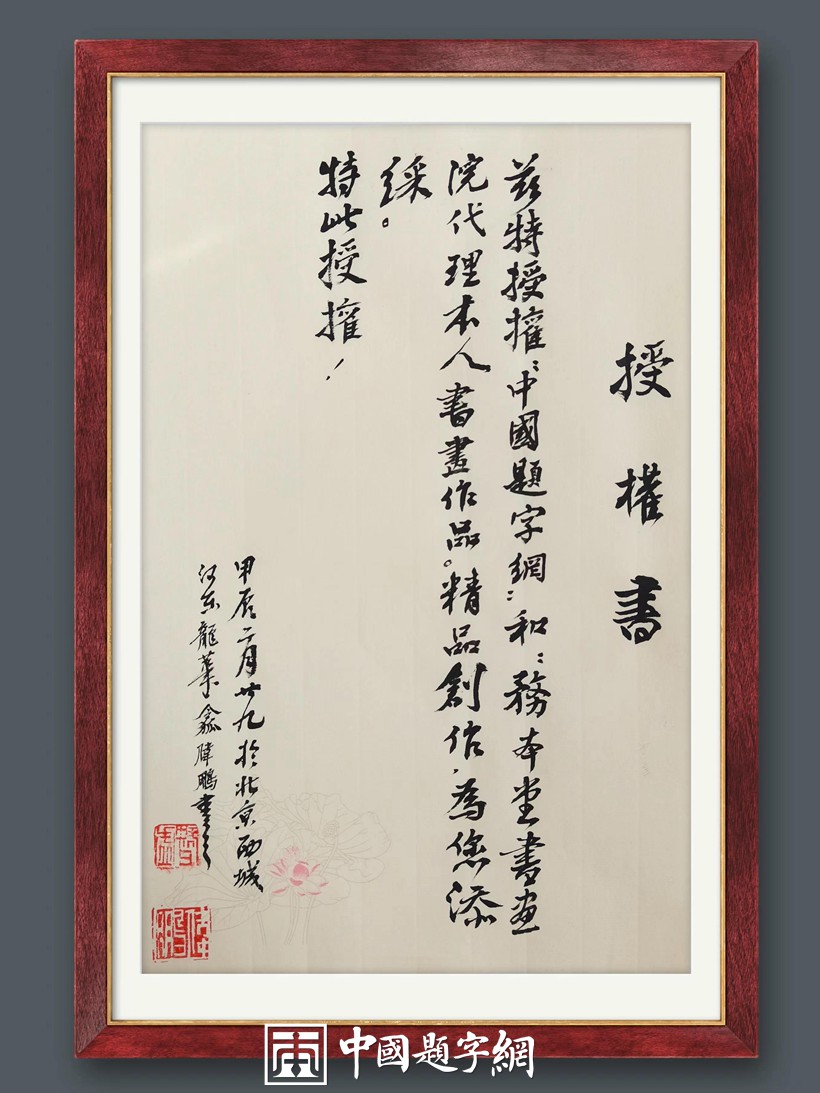 授權書
茲特授權:中國題字網:和:務本堂書画
院代理本人書畫作品。精品創作,為您添
綵。
特此授權!
甲辰二月廿九於北京西城
東龍鵬書
中國題字網